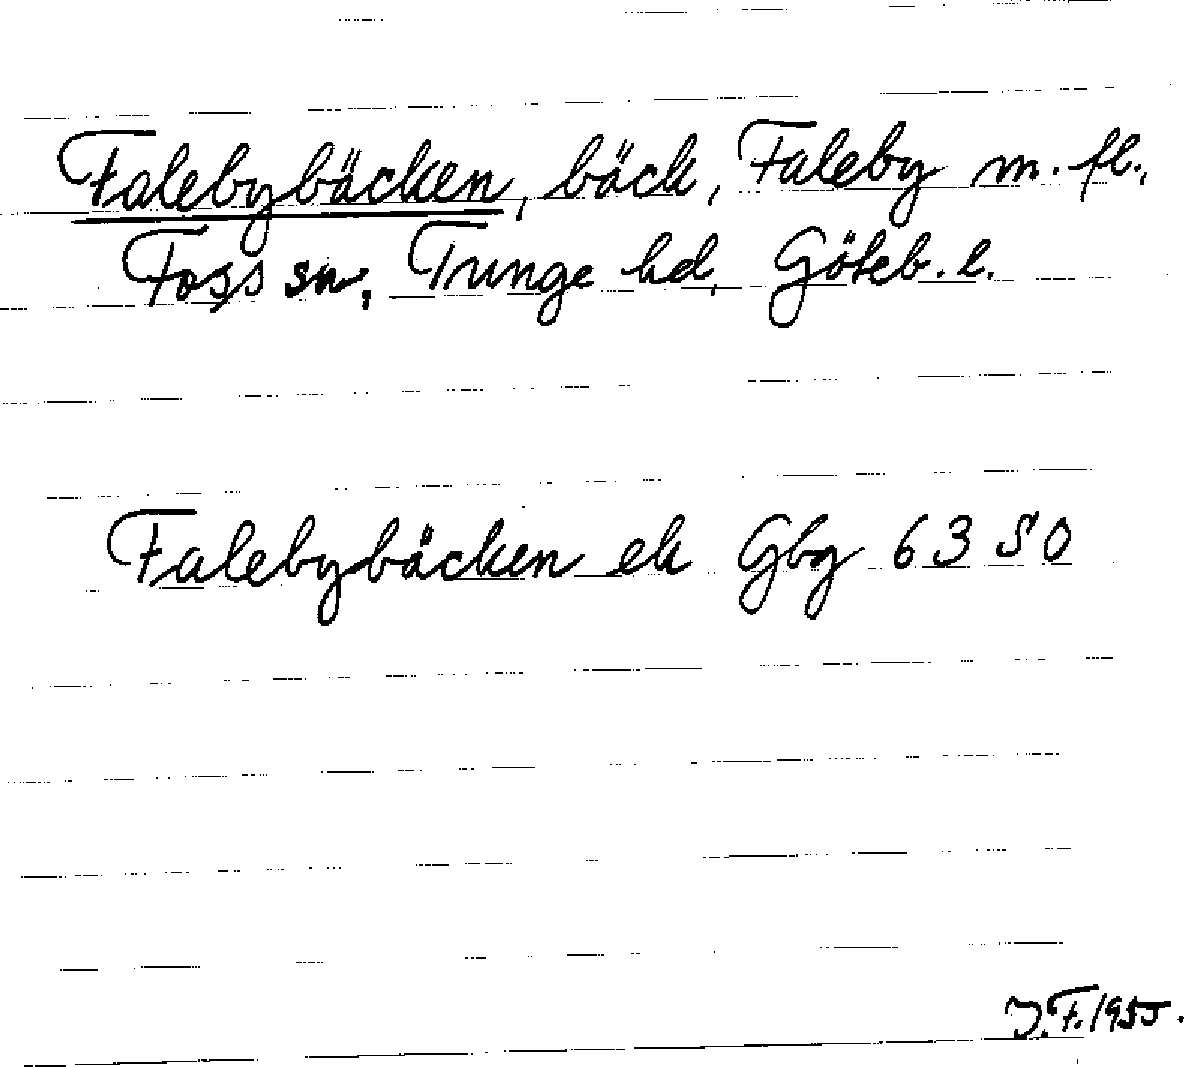 Falebybäcken, bäck, Faleby m. fl.,
Foss sn, Tunge hd, Göteb. l.
Falebybäcken ek Gbg 63 SO
J.F. 1955.